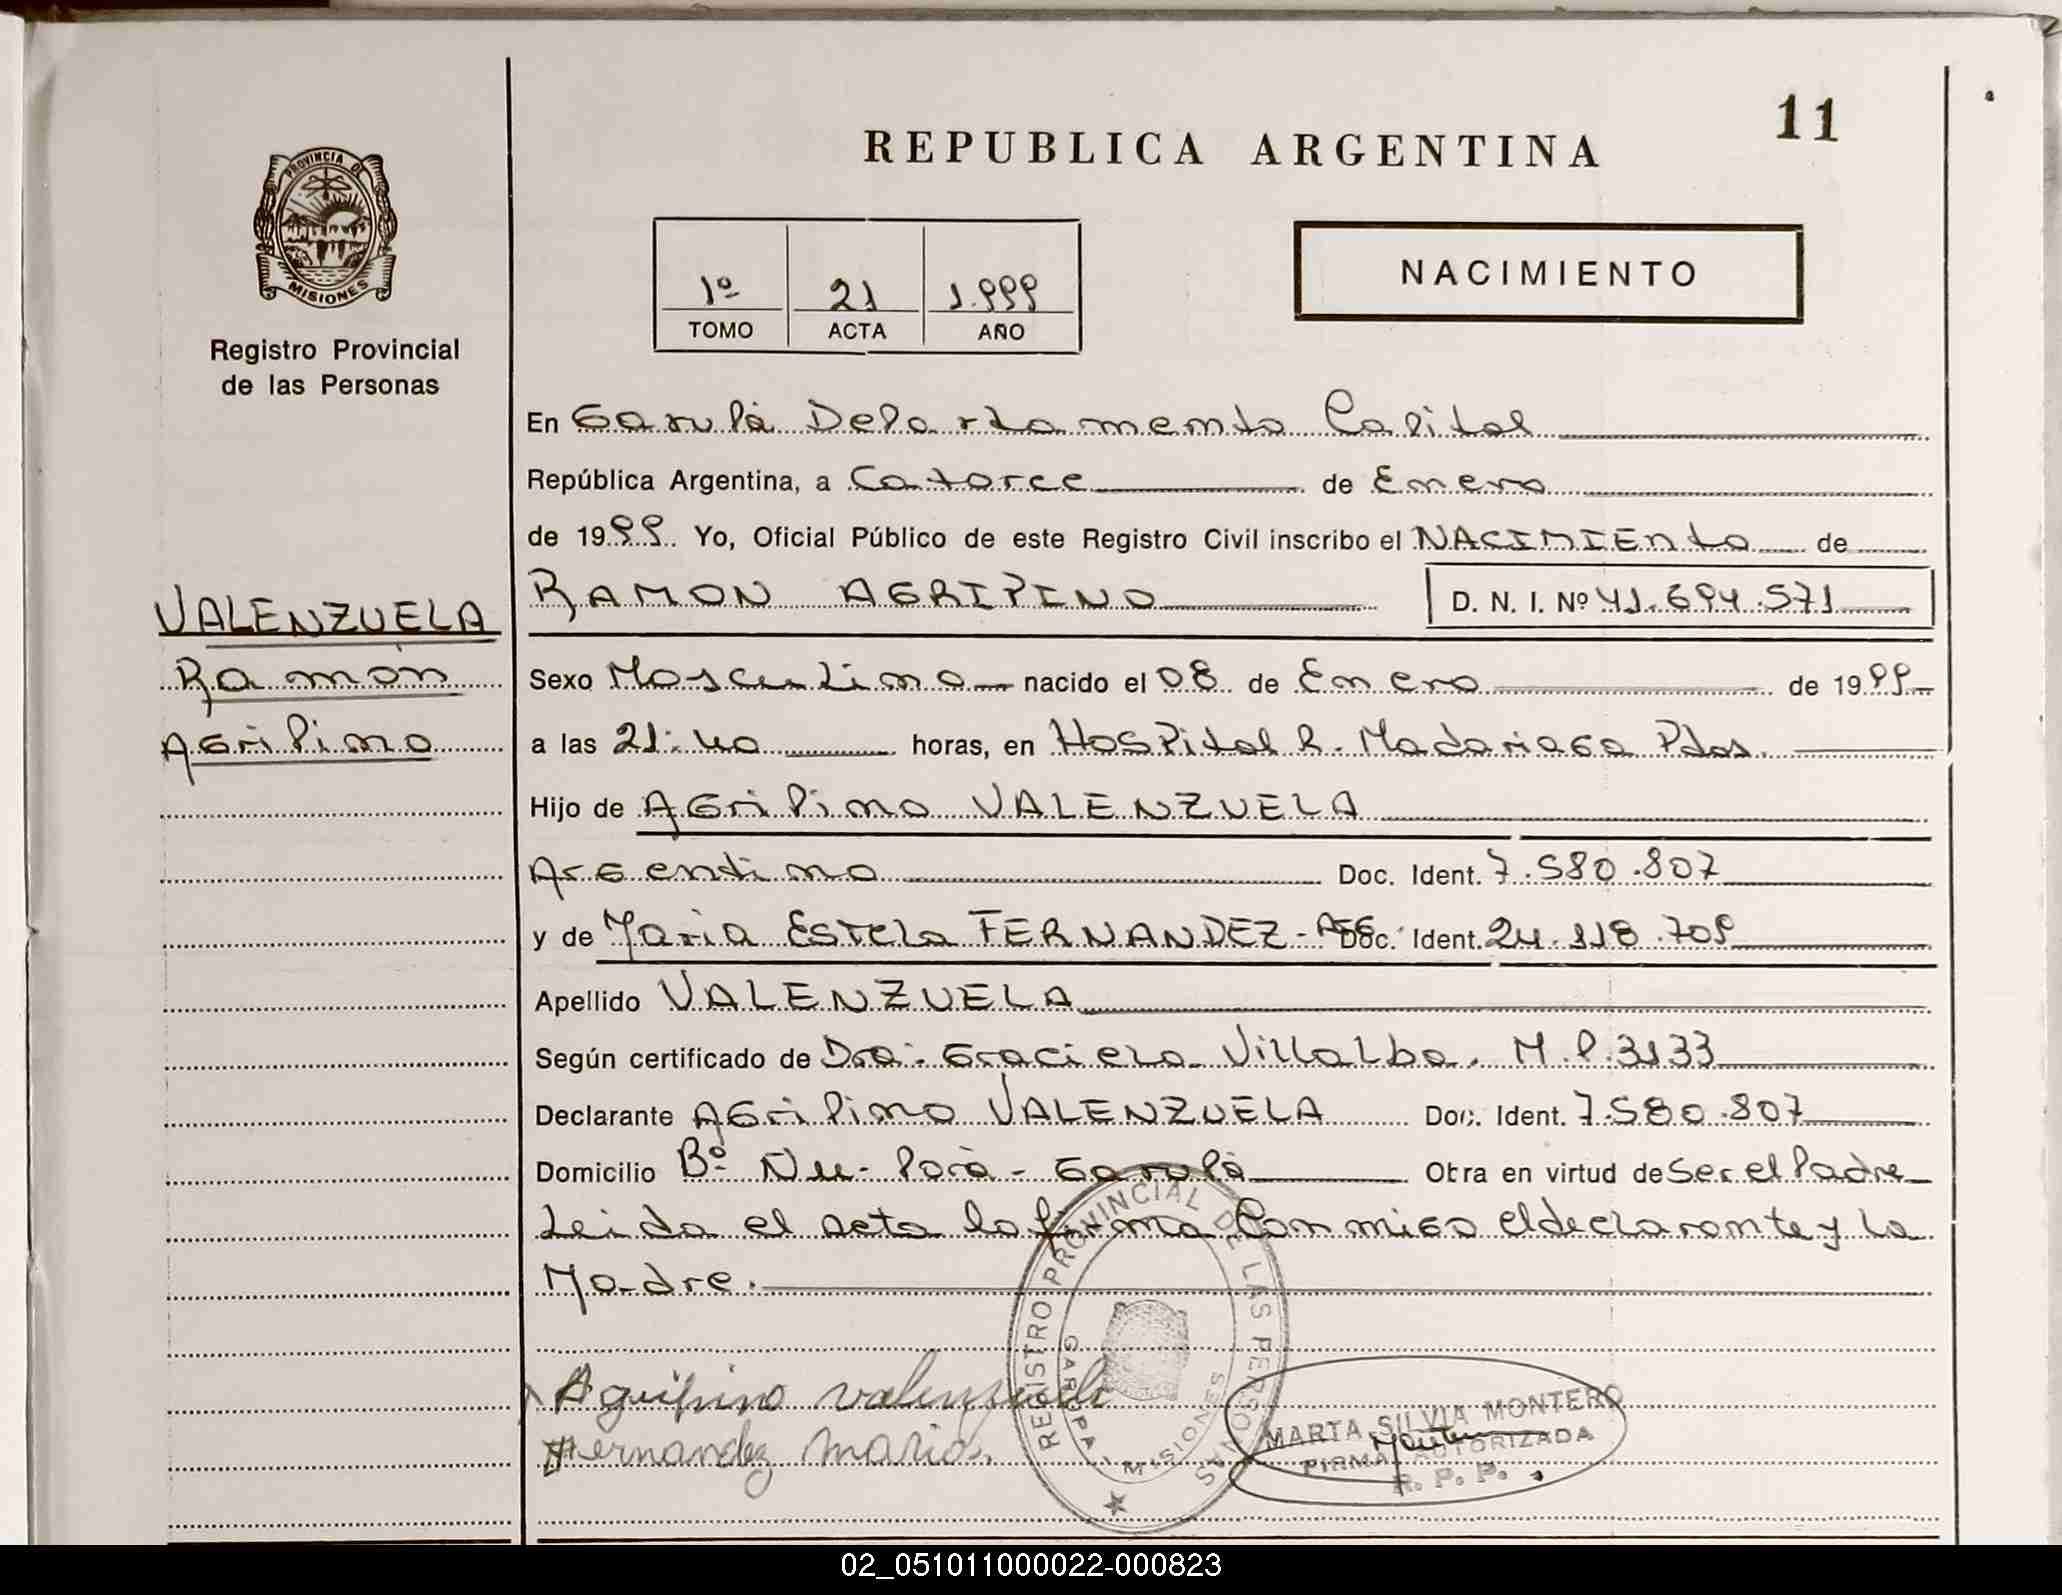 11
REPUBLICA ARGENTINA
PROVINCIA DE
MISIONES
Registro Provincial
de las Personas
NACIMIENTO
1º 21 1.999
TOMO ACTA AÑO
En Garupá Departamento Capital
República Argentina, a Catorce de Enero
de 1999 Yo, Oficial Público de este Registro Civil inscribo el NACIMIENto de
RAMON AGRIPINO D. N. I. Nº 41.694.571
VALENZUELA
Ramón
Agripino
Sexo Masculino nacido el 08 de Enero de 1999
a las 21:40 horas, en Hospital R. Madariaga Pdas.
Hijo de Agripino VALENZUELA
Argentino Doc. Ident. 7.580.807
y de Maria Estela FERNANDEZ - Arg. Doc. Ident. 24.118.709
Apellido VALENZUELA
Según certificado de Dra. Graciela Villalba. M.P. 3133
Declarante Agripino VALENZUELA Doc. Ident. 7.580.807
Domicilio Bº Ñu-Porà - Garupá Obra en virtud de Ser el Padre
Leida el acta la firma Conmigo el declarante y la
Madre.
Agripino valenzuela
Fernandez Maria.
REGISTRO PROVINCIAL DE LAS PERSONAS
GARUPA - MISIONES
MARTA SILVIA MONTERO
FIRMA AUTORIZADA
R. P. P.
02_051011000022-000823